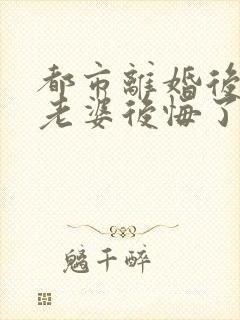 都市離婚後
老婆後悔了
魑千醉